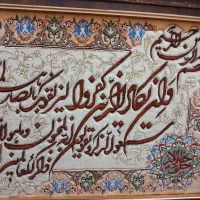 وان یکاد الذین کفروا لیزلقونک بابصارهم لما
سمعوا الذکر و یقولون انه لمجنون و ما هو الا
ذکر للعالمین